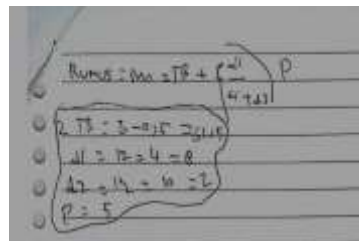 Rumus : Mo = TB + ( d1 / d1 + d2 ) P
TB =
d1 = 12 - 4 = 8
d2 = 12 - 10 = 2
P = 5